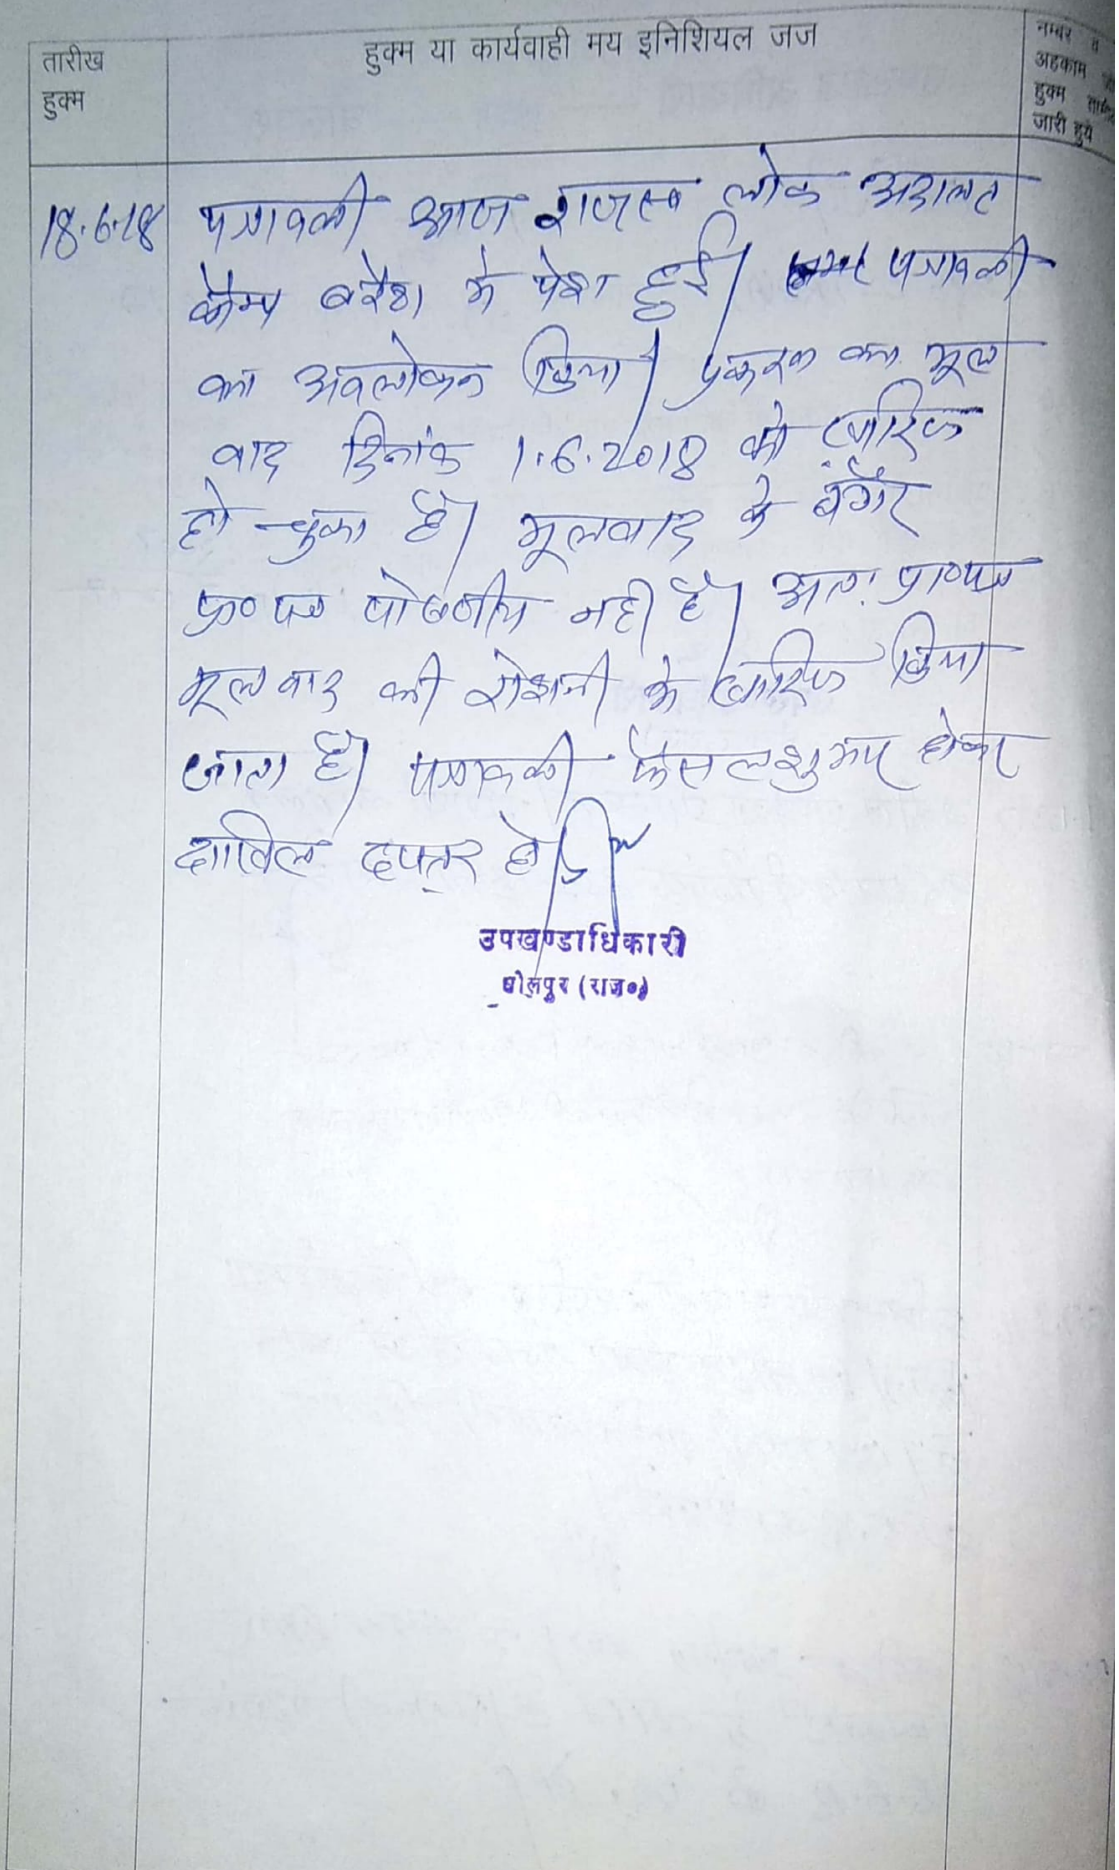 तारीख
हुक्म
हुक्म या कार्यवाही मय इनिशियल जज
नम्बर व
अहकाम
हुक्म
जारी हुये
18.6.18
पत्रावली आज राजस्व लोक अदालत
कैम्प बरैठा मे पेश हुई। पत्रावली
का अवलोकन किया। प्रकरण का मूल
वाद दिनांक 1.6.2018 को खारिज
हो चुका है। मूलवाद के बगैर
प्रा०पत्र पोषणीय नही है। अतः प्रा०पत्र
मूलवाद की रोशनी के खारिज किया
जाता है। पत्रावली फैसलशुमार होकर
दाखिल दफ्तर हो।
उपखण्डाधिकारी
धोलपुर (राज०)